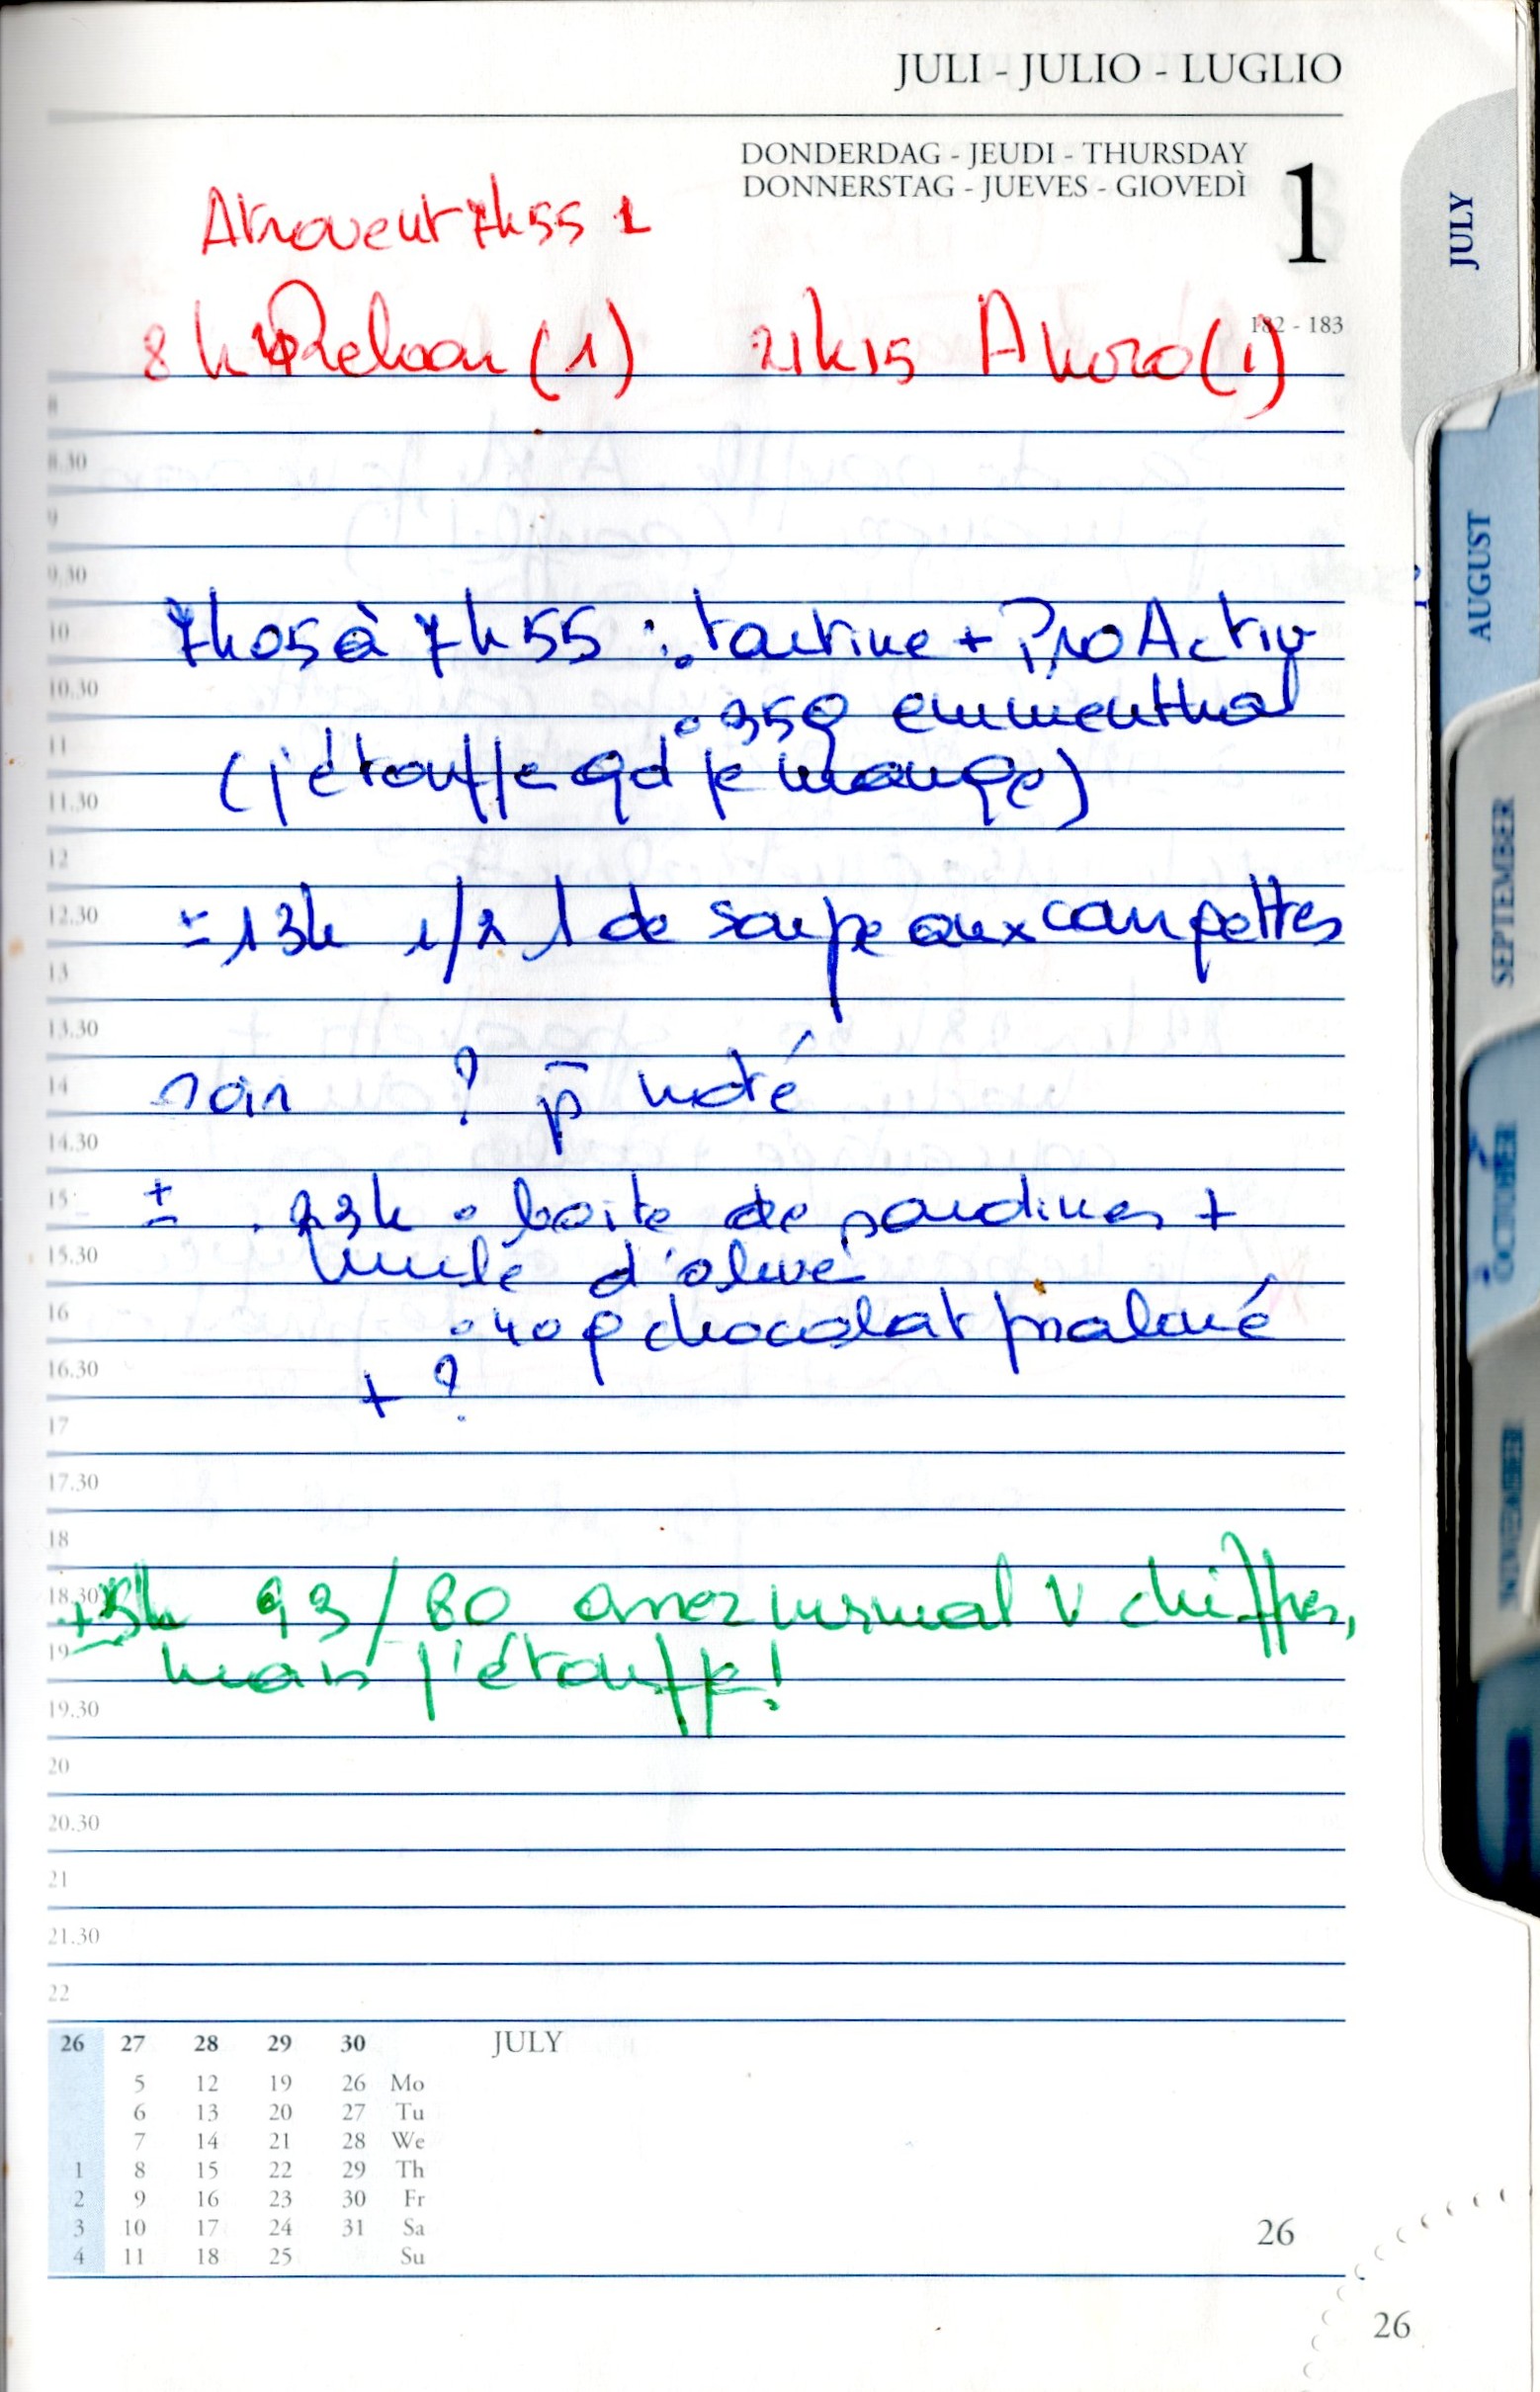 JULI - JULIO - LUGLIO
DONDERDAG - JEUDI - THURSDAY
DONNERSTAG - JUEVES - GIOVEDÌ
1
Atrovent 7h55 1
182 - 183
8h (1) 21h15 Atrov(1)
8
8.30
9
9.30
10 7h05 à 7h55 : • tartine + ProActiv
10.30 • 35g emmenthal
11
(j'étouffe qd je mange)
11.30
12
12.30 ± 13h 1/2 l de soupe aux courgettes
13
13.30
14 soir ? p̄ noté
14.30
15 ± 23h • boite de sardines +
15.30 huile d'olive
16 • 40g chocolat praliné
16.30 + ?
17
17.30
18
18.30 ± 93/80 assez normal chiffres,
19 mais j'étouffe!
19.30
20
20.30
21
21.30
22
26 27 28 29 30 JULY
5 12 19 26 Mo
6 13 20 27 Tu
7 14 21 28 We
1 8 15 22 29 Th
2 9 16 23 30 Fr
3 10 17 24 31 Sa
4 11 18 25 Su
26
26
JULY
AUGUST
SEPTEMBER
OCTOBER
NOVEMBER